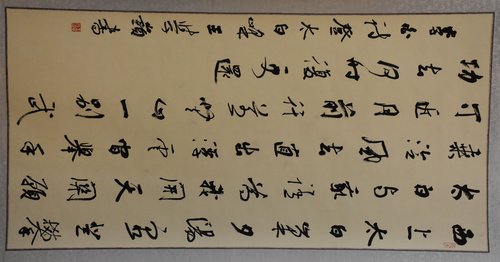 西上太白峯夕陽窮登攀
太白與我語為我開天關願
乘泠風去直出浮雲間舉手
可近月前行若無山一別武
功去何時復更還
李白詩登太白峯王韻書